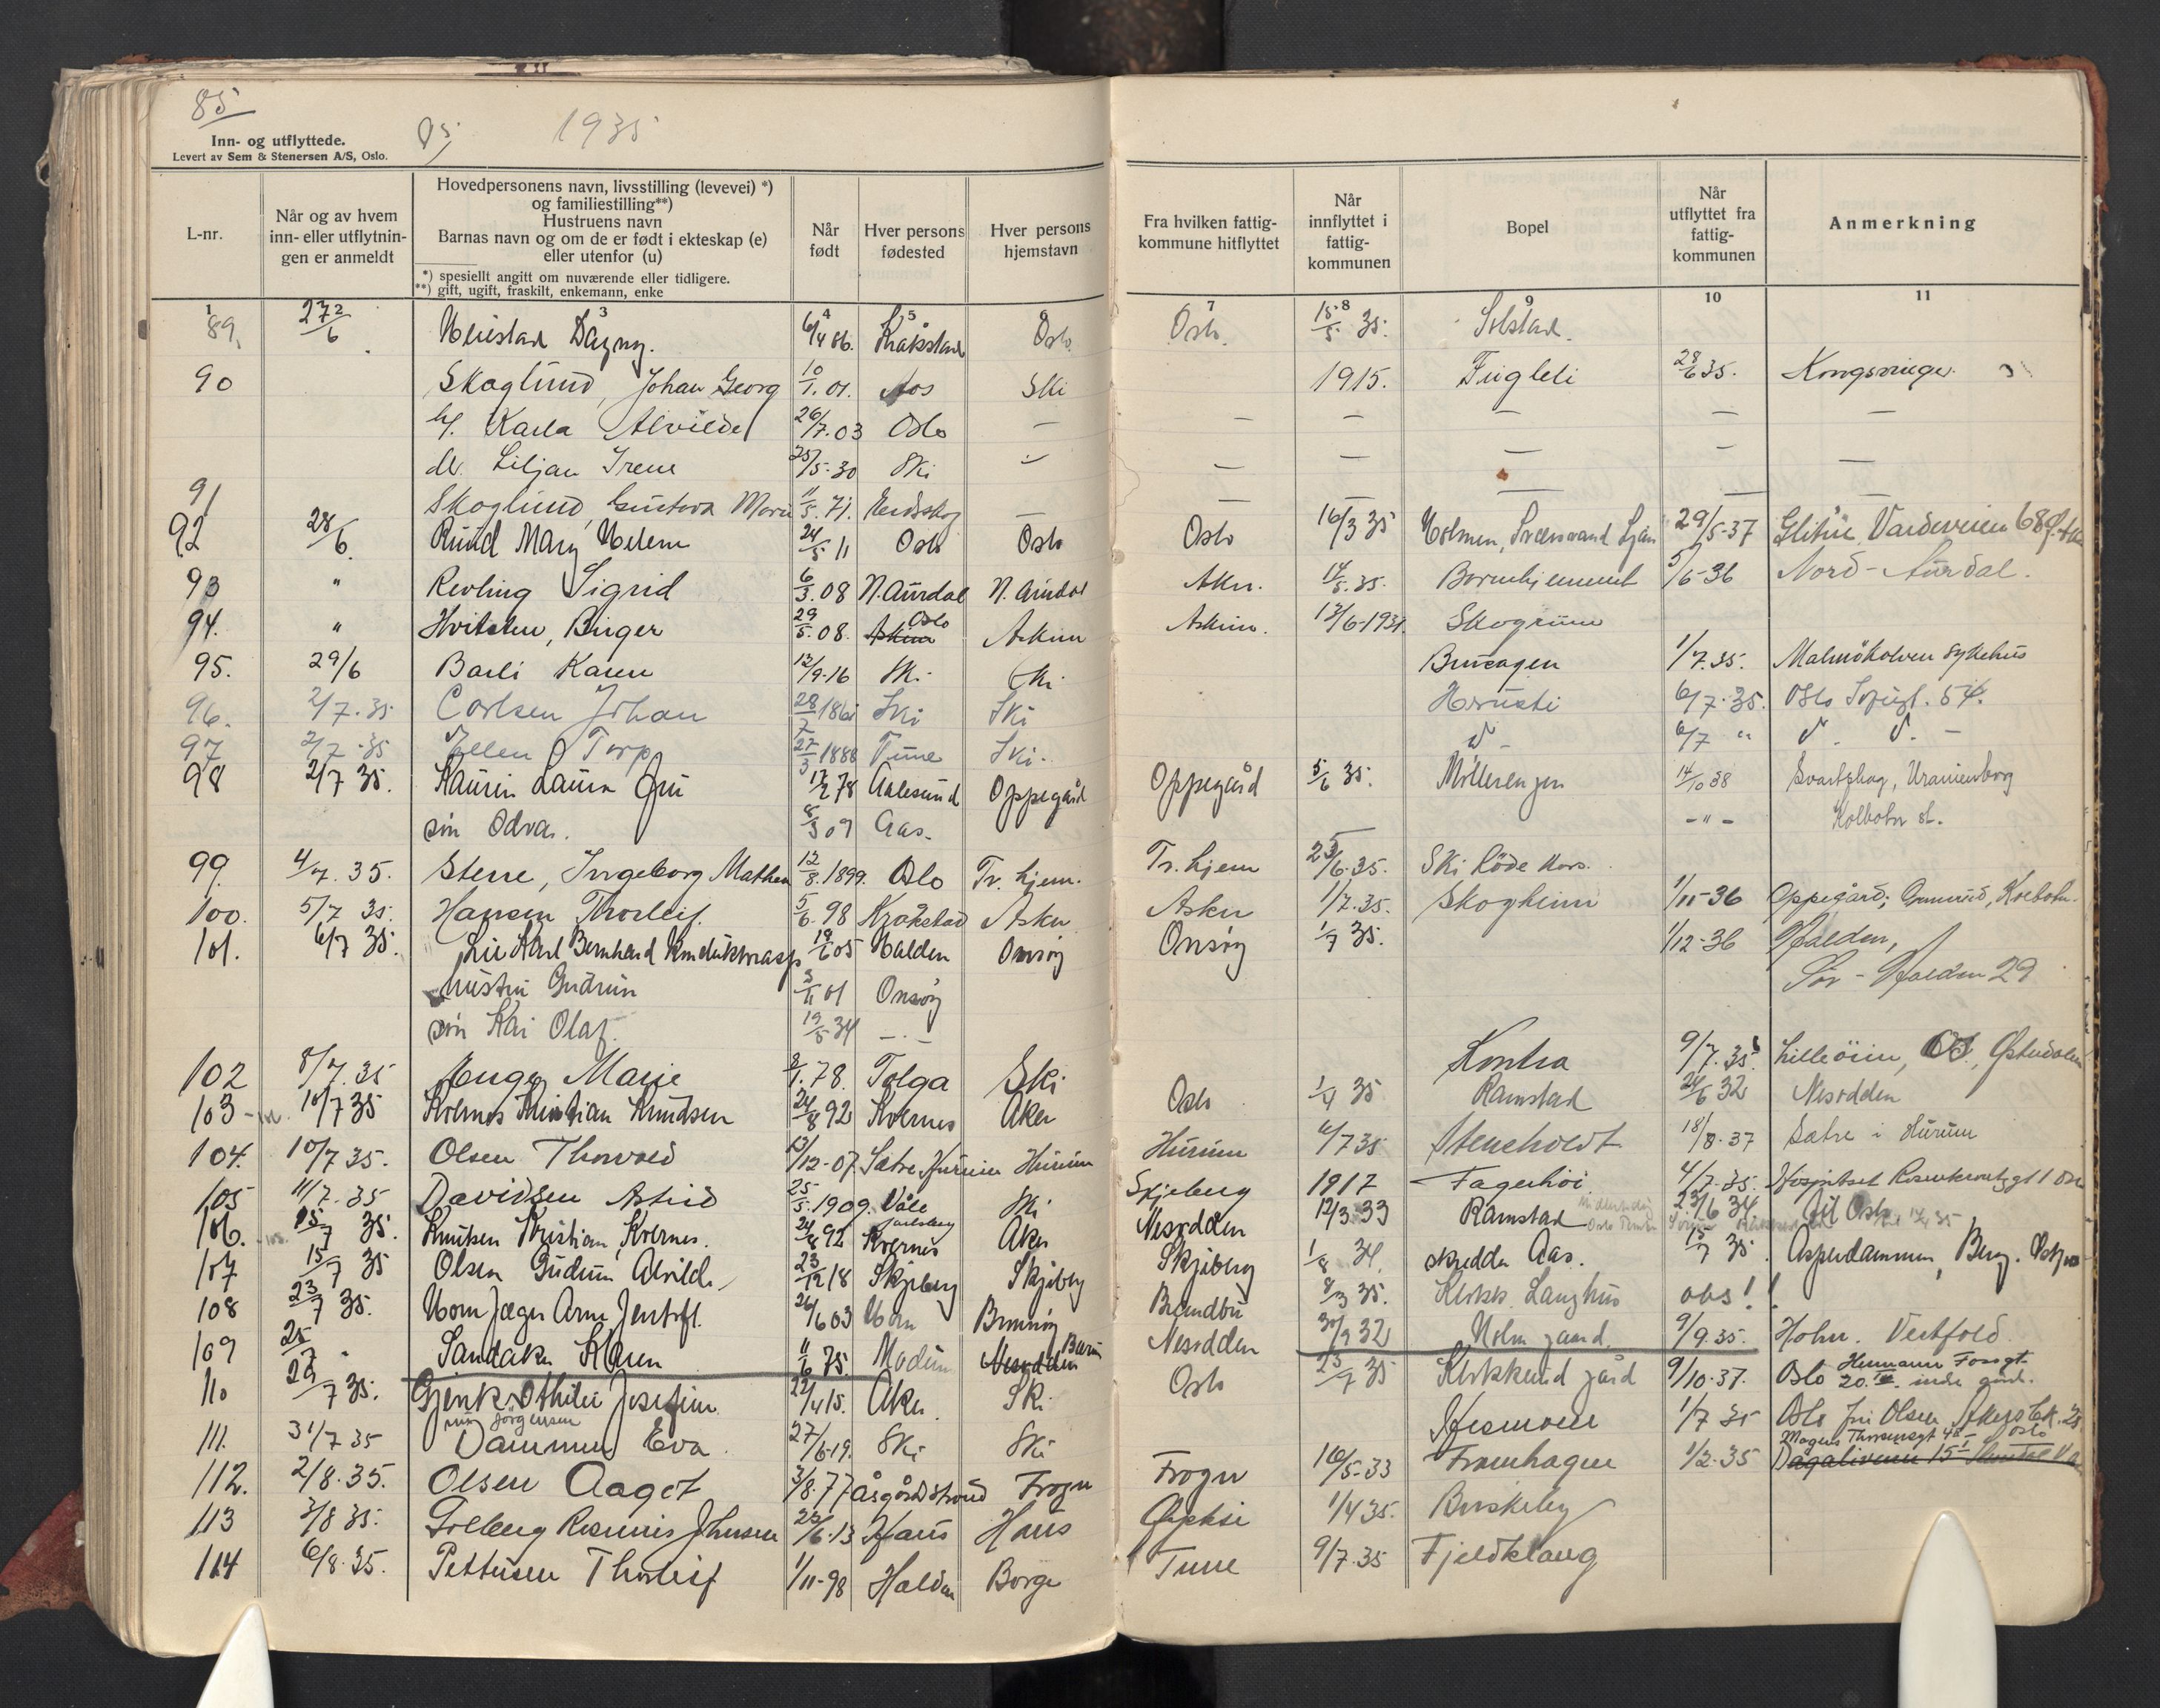 85
85 1935
Inn- og utflyttede.
Levert av Sem & Stenersen A/S, Oslo.
L-nr.
Når og av hvem inn- eller utflytnin-gen er anmeldt
Hovedpersonens navn, livsstilling (levevei) *)
og familiestilling**)
Hustruens navn
Barnas navn og om de er født i ekteskap (e)
eller utenfor (u)
*) spesiellt angitt om nuværende eller tidligere.
**) gift, ugift, fraskilt, enkemann, enke
Når født
Hver persons fødested
Hver persons hjemstavn
Fra hvilken fattig-kommune hitflyttet
Når innflyttet i fattig-kommunen
Bopel
Når utflyttet fra fattig-kommunen
Anmerkning
1 2 3 4 5 6 7 8 9 10 11
89. 27/6 Dagny. 6/4 86. Kråkstad Oslo Oslo. 15/5 35. Solstad.
90 Skoglund, Johan Georg 10/1.01. Aas Ski 1915. Fugleli 28/6 35.
hf. Karla Alvilde 26/7.03 Oslo — — — — — —
dt. Liljan Irene 25/5-30 Ski — — — — —
91 Skoglund Gustava Marie 11/5.71. — — — — — —
92 28/6. Rund Mary Helene 24/5 11 Oslo Oslo Oslo 16/3 35 Holmen, 29/5-37 Glitre, Vardeveien 68
93 " Revling Sigrid 6/3.08 N. Aurdal N. Aurdal Aker. 14/5.35. Barnehjemmet 5/6-36 Nord-Aurdal.
94. " Hvitsten, Birger 29/5.08. Askim Oslo Askim Askim. 13/6-1931. Skogrum
95. 29/6 Barli Karen 12/9-16 Ski Ski Bruhagen 1/7.35. Malmökalven sykehus
96. 2/7.35 Carlsen Johan 28/7 1861 Ski Ski 6/7.35. Oslo Sofiegt. 54.
97 2/7.35 Ellen Torp 27/3 1888 Tune Ski. 6/7 "
98 2/7 35. Kaurin Laura Fru 17/2 78 Aalesund Oppegård Oppegård 5/6 35. Möllerengen 14/10 38 Svartskog, Uranienborg
sön Odvar. 8/3 09 Aas. -"- Kolbotn st.
99. 4/7.35. Stene, Ingeborg Mathea 12/8.1899. Oslo Tr. hjem. Tr. hjem 25/6.35. Ski Röde Kors.
100. 5/7 35. Hansen Thorleif. 5/6.98 Krokstad Asker Asker 1/7.35. Skogheim 1/11-36 Oppegård; Kolbotn.
101. 6/7 35. Lie Karl Bernhard 05 Halden Onsöy Onsöy 1/7 35. 1/12-36 Halden,
hustru Gudrun 01 Onsöy Sør-Halden 29
sön Kai Olaf. 19/5 34 -.-
102 8/7.35 Enge Marie 8/1.78. Tolga Ski Kontra 9/7.35 Os, Østerdalen
103 10/7 35 Kvernes Kristian Knudsen 24/8 92 Kvernes Aker Oslo 1/4 35 Ramstad 24/6 32 Nesodden
104. 10/7 35. Olsen Thorvald 13/12-07. Sætre Hurum Hurum Hurum 6/7 35 Steneholdt 18/8-37 Sætre i Hurum
105 11/7.35 Davidsen Astrid 25/5.1909. Våle Jarlsberg Ski Skjeberg 1917 Fagerhöi 4/7.35. Hospitset Rosenkrantzgt 1 Oslo
106. 15/7 35. Knutsen Kristian, Kvernes. 24/8 92 Kvernes Aker Nesodden 12/3.33 Ramstad 23/6 34 til Oslo
107 15/7 35 Olsen Gudrun Alvilde 23/12 18 Skjeberg Skjeberg Skjeberg 1/8 34. skredder Aas. 15/7 35. Aspedammen, Berg.
108 23/7 35. Horn Jæger Arne 26/6 03 Horn Brunlanes Brandbu 8/3 35. Klokk. Langhus obs!
109 25/7 " Sandaker Karen 11/6 75. Modum Nesodden Bærum Nesodden 30/9 32 Holm gaard. 9/9.35. Hohn. Vestfold.
110 29/7 35. Othilie Josefine 22/4 15. Aker. Ski. Oslo 25/7 35 Klokkerud gård 9/10-37. Oslo Hermann Fossgt. 20. IV. indre gård.
nu Jörgensen
111. 31/7 35 Dammen Eva. 27/6-19. Ski Ski 1/7 35 Oslo Fru Olsen,
112. 2/8.35. Olsen Aagot 3/8.77 Åsgårdstrand Frogn Frogn 16/5-33 Framhagen 1/2-35 Magnus Thronsensgt 48 Oslo
113 3/8 35. Solberg Johnsen 25/6.13 Haus Haus 1/4 35. Buskeby
114 6/8.35. Pettersen Thorleif 1/11-98 Halden Borge Tune 9/7.35 Fjeldklang